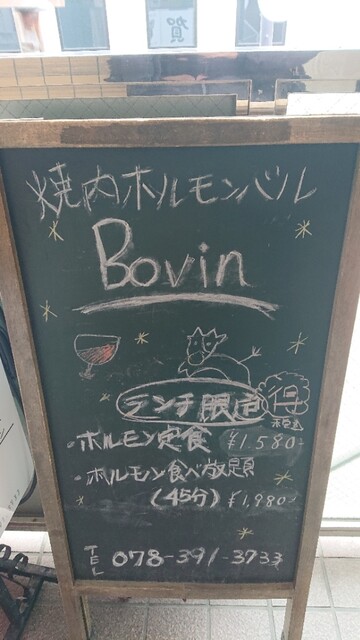 賀
焼肉ホルモンバル
Bovin
ランチ限定 得
税込
・ホルモン定食 ¥1,580-
・ホルモン食べ放題
(45分) ¥1,980-
TEL 078-391-3733